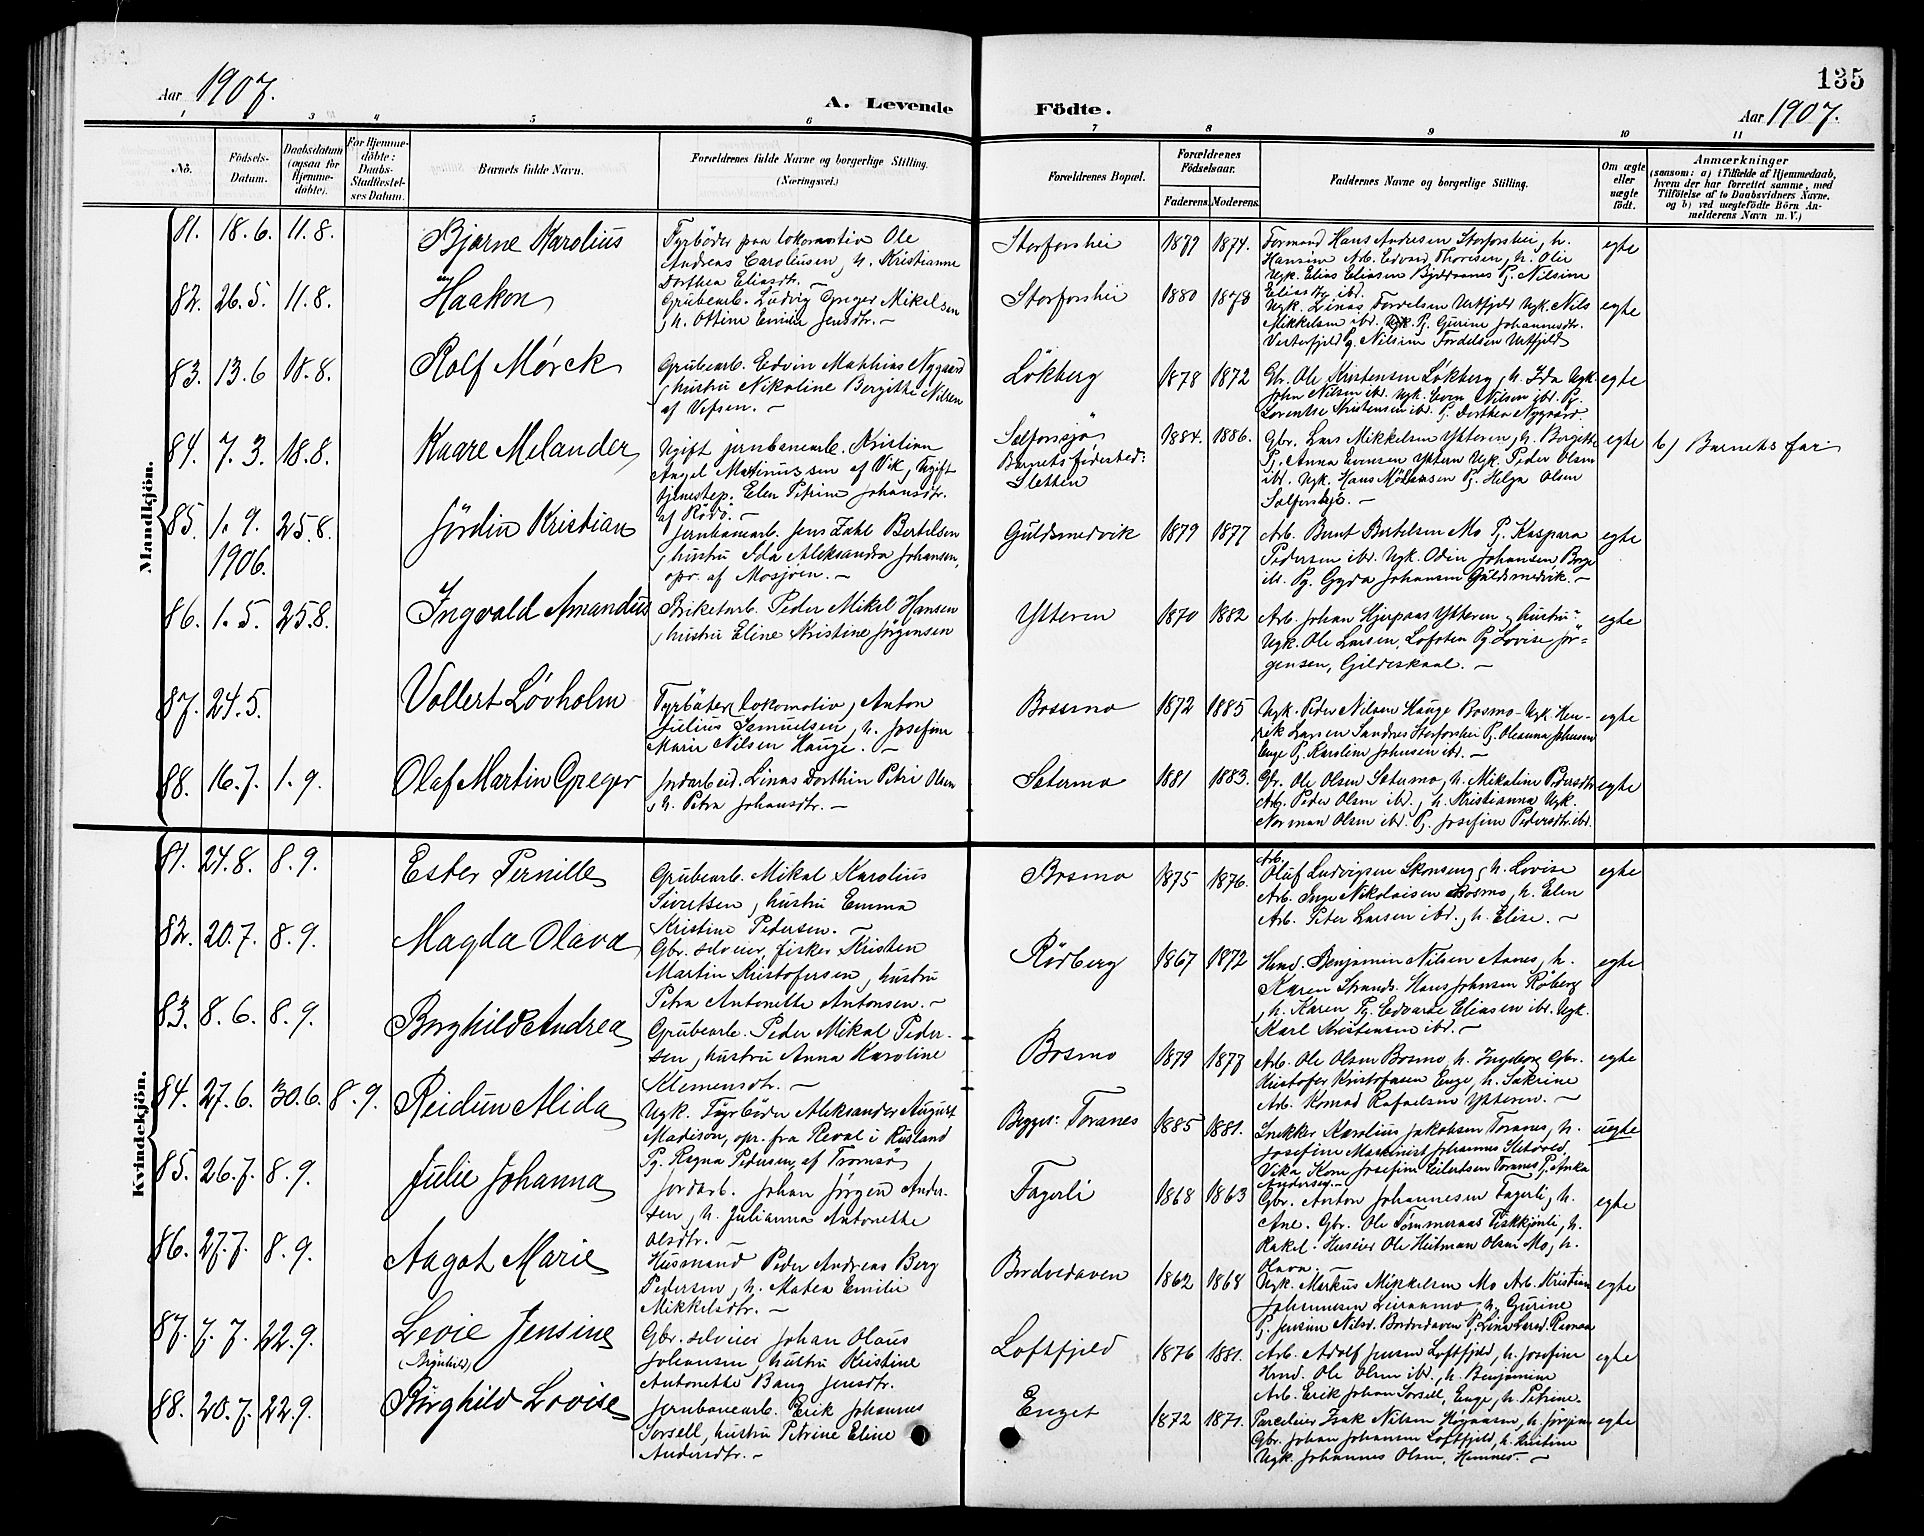 135
Aar 1907.
A. Levende Fødte.
Aar 1907.
1 3 4 5 6 7 8 9 10 11
No.
Födsels-Datum.
Daabsdatum (ogsaa for Hjemmedøbte).
For Hjemmedöbte: Daabs-Stadfæstelses Datum.
Barnets fulde Navn.
Forældrenes fulde Navne og borgerlige Stilling. (Næringsvei.)
Forældrenes Bopæl.
Forældrenes Födselsaar.
Faderens. Moderens.
Faddernes Navne og borgerlige Stilling.
Om ægte eller uægte født.
Anmærkninger (saasom: a) i Tilfælde af Hjemmedaab, hvem der har forrettet samme, med Tilföielse af to Daabsvidners Navne, og b) ved uægtefödte Börn Anmelderens Navn m. V.)
Mandkjön.
81. 18.6. 11.8. Bjarne Karolius
Fyrbøder paa lokomotiv Ole
Andreas Caroliussen, h. Kristianne
Dorthea Eliasdtr. —
Storforshei 1879 1874.
Formand Hans Andresen Storforshei, h.
Hansine Arb. Edvard Thoresen, h. Olie
Ugk. Elias Eliasen Pg. Nilsine
Eliasdtr ibd.
egte
82. 26.5. 11.8. Haakon
Grubearb. Ludvig Greger Mikelsen
, h. Ottine Emilie Jensdtr. —
Storforshei 1880 1878
Ugk. Linas Tordelsen Urtfjeld Ugk. Nils
Mikkelsen ibd. Pg. Gurine Johannesdtr.
Vesterfjeld Pg. Nilsine Tordelsen Urtfjeld
egte
83. 13.6 18.8. Rolf Mørck
Grubearb. Edvin Mathias Nygaard
, hustru Nikoline Borgitte Nilsen
af Vefsen. —
Lökberg 1878 1872
Gbr. Ole Kristensen Lökberg, h. Ida Ugk.
John Nilsen ibd. Ugk. Even Nilsen ibd. Pg.
Lorentse Kristensen ibd. Pg. Dorthea Nygaard
egte
84. 7.3. 18.8. Kaare Melander
Ugift jernbanearb. Kristian
Angel Martinussen af Vik, Ugift
tjenestep. Elen Petrine Johansdtr.
af Rödö. —
Selforssjø
Barnets födested:
Sletten
1884. 1886.
Gbr. Lars Mikkelsen Ytteren, h. Borgitte
Pg. Anna Evensen Yttern Ugk. Peder Olsen
ibd. Ugk. Hans Pg. Helga Olsen
Selforssjø. —
egte b) Barnets far
85. 1.9. 1906. 25.8. Jördin Kristian
Jernbanearb. Jens Zahl Bertelsen
, hustru Ida Aleksandra Johansen,
opr. af Mosjøen. —
Guldsmedvik 1879 1877
Arb. Bernt Bertelsen Mo Pg. Kaspara
Pedersen ibd. Ugk. Odin Johansen Borge
ibd. Pg. Gyda Johansen Guldsmedvik. —
egte
86. 1.5. 25.8. Ingvald Amandus
Briketarb. Peder Mikel Hansen
, hustru Eline Kristine Jörgensen
Ytteren 1870 1882
Arb. Johan Hjerpaas Ytteren, hustru.
Ugk. Ole Larsen, Lofoten Pg. Lovise Jör-
gensen, Gildeskaal. —
egte
87. 24.5. Vollert Lövholm
Fyrböter, lokomotiv, Anton
Julius Samuelsen, h. Josefine
Marie Nilsen Hauge. —
Bossmo 1872 1885
Ugk. Peder Nilsen Hauge Bosmo Ugk. Hen-
rik Larsen Sandnes Storforshei Pg. Oleanna Johnsen
Enge Pg. Karoline Johnsen ibd. —
egte
88. 16.7. 1.9. Olaf Martin Greger
Jordarbeid. Linas Dorthin Petri Olsen
, h. Petra Johansdtr. —
Setermo 1881 1883.
Gbr. Ole Olsen Setermo, h. Mikaline Pedersdtr
Arb. Peder Olsen ibd., h. Kristianna Ugk.
Norman Olsen ibd. Pg. Josefine Pedersdtr. ibd.
egte
Kvindekjön.
81. 24.8. 8.9. Ester Pernille
Grubearb. Mikal Karolius
Sivertsen, hustru Emma
Kristine Pedersen. —
Bosmo 1875 1876.
Arb. Oluf Ludvigsen Skonseng, h. Lovise
Arb. Inge Nikolaisen Bosmo, h. Elen
Arb. Peter Larsen ibd., h. Elise. —
egte
82. 20.7. 8.9. Magda Olava
Gbr. selveier, fisker Kristen
Martin Kristofersen, hustru
Petra Antonette Antonsen. —
Rödberg 1867 1872
Hmd. Benjamin Nilsen Aanes, h.
Karen Strands. Hans Johnsen Röberg
, h. Karen Pg. Edvarte Eliasen ibd. Ugk.
Karl Kristensen ibd. —
egte
83. 8.6. 8.9. Borghild Andrea
Grubearb. Peder Mikal Peder-
sen, hustru Anna Karoline
Klemensdtr. —
Bosmo 1879 1877
Arb. Ole Olsen Bosmo, h. Ingeborg Gbr.
Kristofer Kristofersen Enge, h. Sakrine
Arb. Konrad Rafaelsen Ytteren. —
egte
84. 27.6. 30.6. 8.9. Reidun Alida
Ugk. Fyrböder Aleksander August
Madison, opr. fra Reval i Rusland
Pg. Ragna Pedersen, af Tromsö
Begges: Toranes 1885 1881.
Snekker Karolius Jakobsen Toranes, h.
Josefine Maskinist Johannes Sletvold,
Vika Kone Josefine Seilertsen Toranes Pg. Anka
Andersen. —
uegte
85. 26.7. 8.9. Julie Johanna
Jordarb. Johan Jörgen Ander-
sen, h. Julianna Antonette
Olsdtr. —
Fagerli 1868 1863
Gbr. Anton Johannesen Fagerli, h.
Ane. Gbr. Ole Tömmernaas Fiskkjönli, h.
Rakel. Huseier Ole Heitman Olsen Mo, h.
Olava. —
egte
86. 27.7. 8.9. Aagot Marie
Husmand Peder Andreas Berg
Pedersen, h. Matea Emilie
Mikkelsdtr. —
Bordvedaven 1862 1868
Ugk. Markus Mikkelsen Mo Arb. Kristian
Johannesen Leiraamo, h. Gurine
Pg. Jensine Nilsd. Bordvedaven Pg. Lina Larsd. Ravnaa
egte
87. 7.7. 22.9. Levie Jensine
(Brynhild)
Gbr. selveier Johan Olaus
Johansen, hustru Kristine
Antonette Bang Jensdtr.
Loftfjeld 1876 1881.
Arb. Adolf Jensen Loftfjeld, h. Josefine
Hmd. Ole Olsen ibd., h. Benjamine
Arb. Erik Johan Sorsell, Enge, h. Petrine.
egte
88. 20.7. 22.9. Borghild Lovise
Jernbanearb. Erik Johannes
Sorsell, hustru Petrine Eline
Andersdtr. —
Enget 1872 1871.
Parceleier Isak Nilsen Högaasen, h. Jörgine
Gbr. Johan Johansen Loftfjeld, h. Kristine
Ugk. Johannes Olsen, Hemnes. —
egte